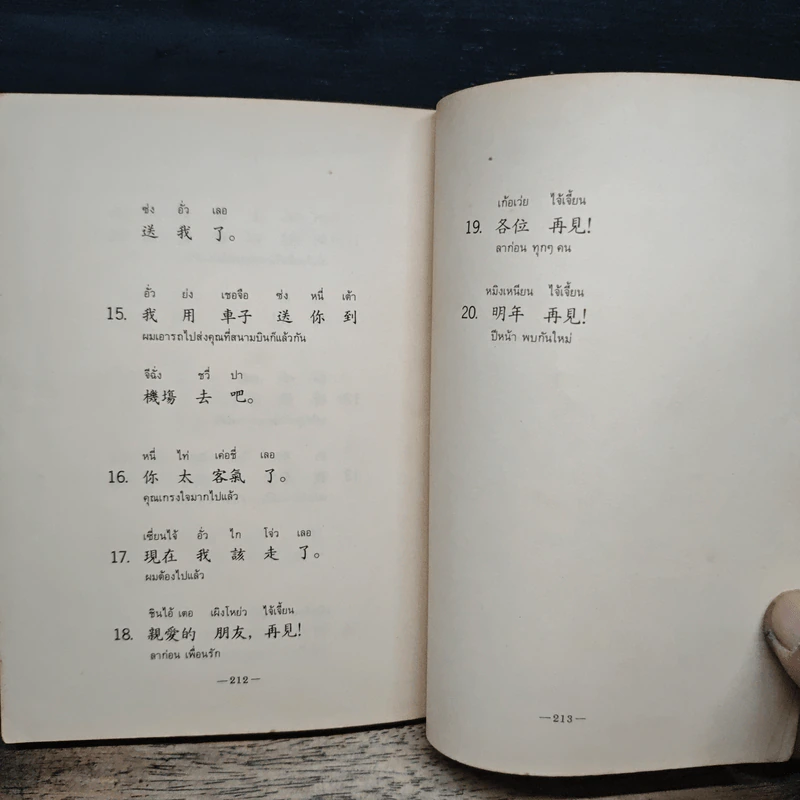 ซ่ง อั่ว เลอ
送 我 了。
อั่ว ย่ง เชอจือ ซ่ง หนี่ เต้า
15. 我 用 車子 送 你 到
ผมเอารถไปส่งคุณที่สนามบินก็แล้วกัน
จีฉั่ง ชวี่ ปา
機場 去 吧。
หนี่ ไท่ เค่อชี่ เลอ
16. 你 太 客氣 了。
คุณเกรงใจมากไปแล้ว
เซี่ยนไจ้ อั่ว ไก โจ่ว เลอ
17. 現在 我 該 走 了。
ผมต้องไปแล้ว
ชินไอ้ เตอ เผิงโหย่ว ไจ้เจี้ยน
18. 親愛的 朋友, 再見!
ลาก่อน เพื่อนรัก
—212—
เก้อเว่ย ไจ้เจี้ยน
19. 各位 再見!
ลาก่อน ทุกๆ คน
หมิงเหนียน ไจ้เจี้ยน
20. 明年 再見!
ปีหน้า พบกันใหม่
—213—